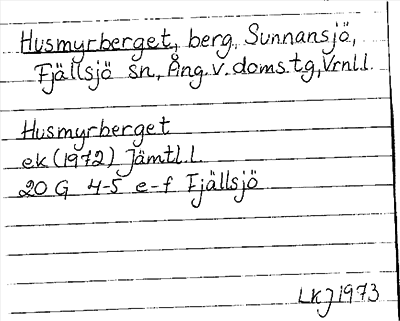 Husmyrberget, berg, Sunnansjö,
Fjällsjö sn., Ång.v.doms.tg, Vrnl.l.
Husmyrberget
ek (1972) Jämtl.l.
20 G 4-5 e-f Fjällsjö
LKJ 1973